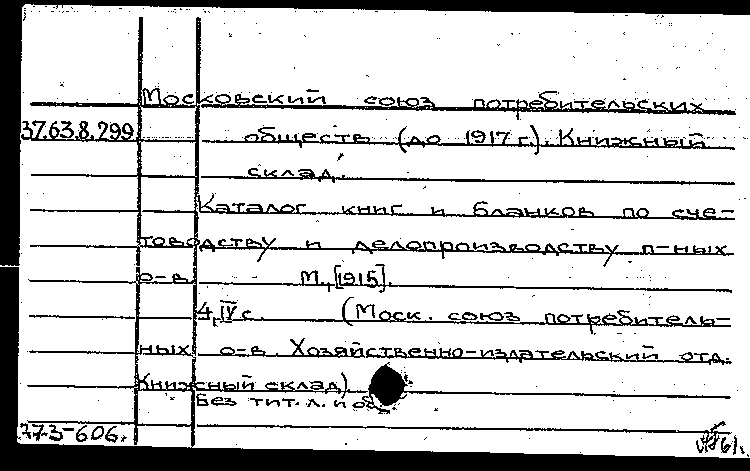 Московский союз потребительских
37.63.8.299 обществ (до 1917 г.). Книжный
склад.
Каталог книг и бланков по сче-
товодству и делопроизводству п-ных
о-в. М., [1915].
4, IV с. (Моск. союз потребитель-
ных о-в. Хозяйственно-издательский отд.
Книжный склад).
Без тит. л. и об
373-606. 61.